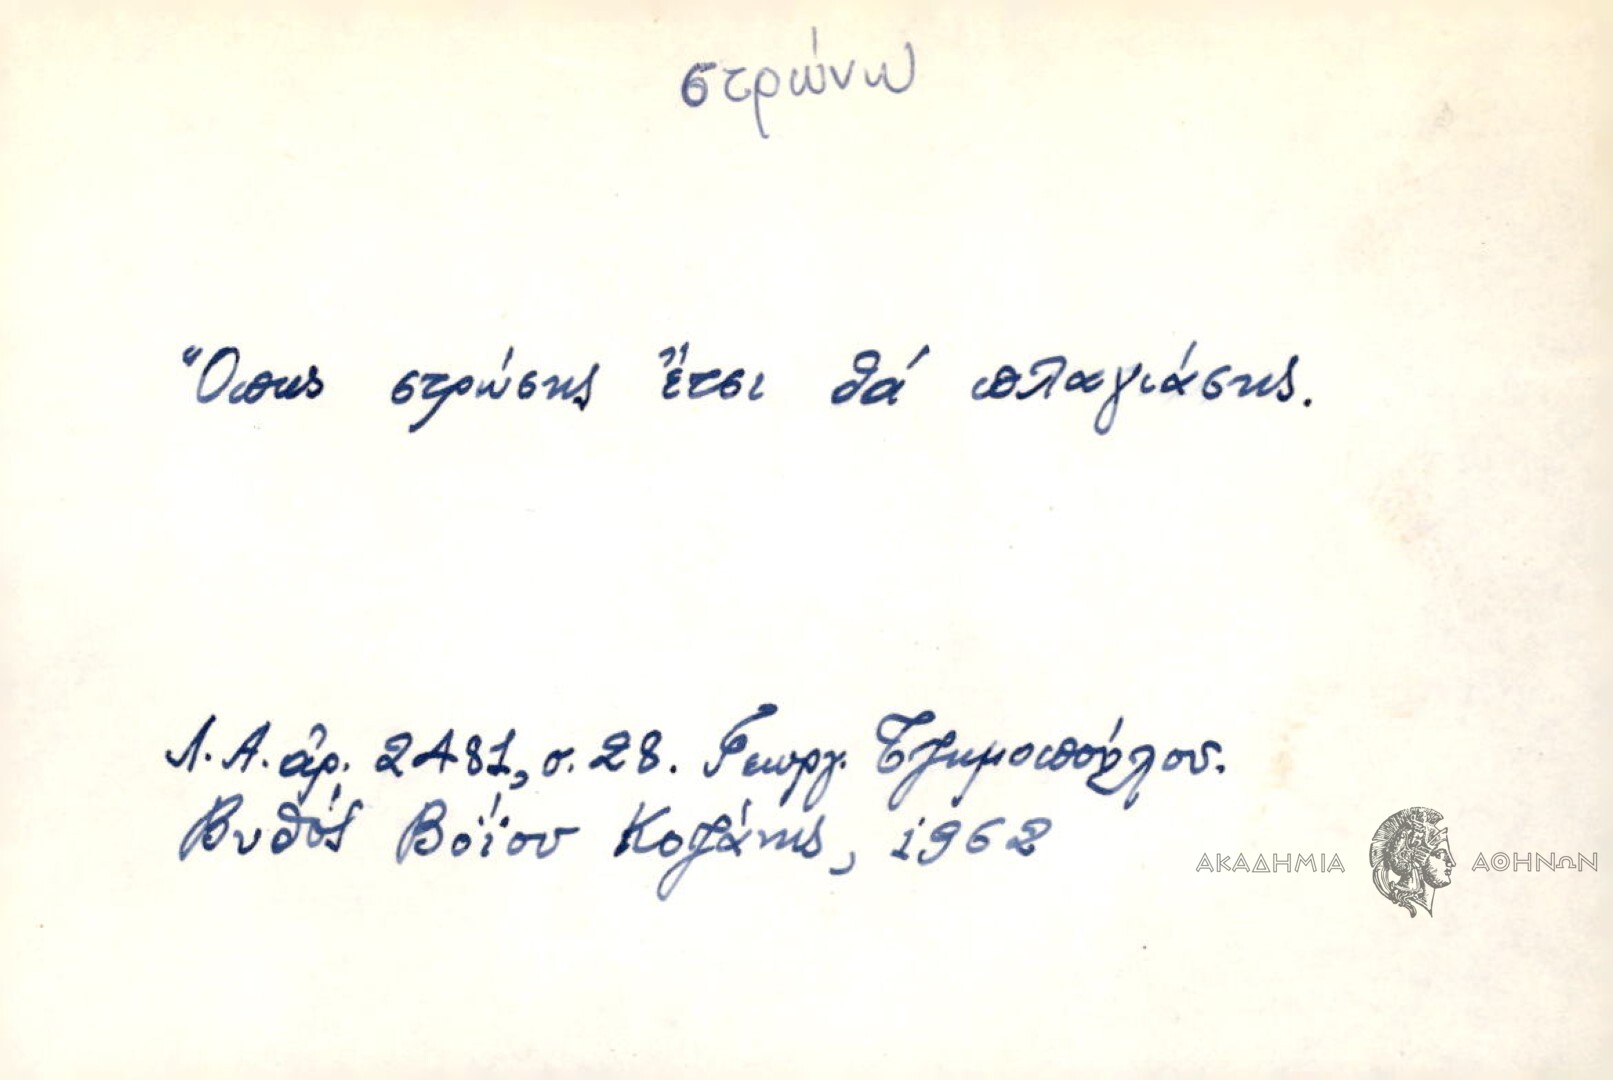 στρώνω
Ὅπως στρώσης ἔτσι θά πλαγιάσης.
Λ.Α. ἀρ. 2481, σ. 28. Γεωργ. Τζημοπούλου.
Βυθός Βοΐου Κοζάνης, 1962
ΑΚΑΔΗΜΙΑ ΑΘΗΝΩΝ